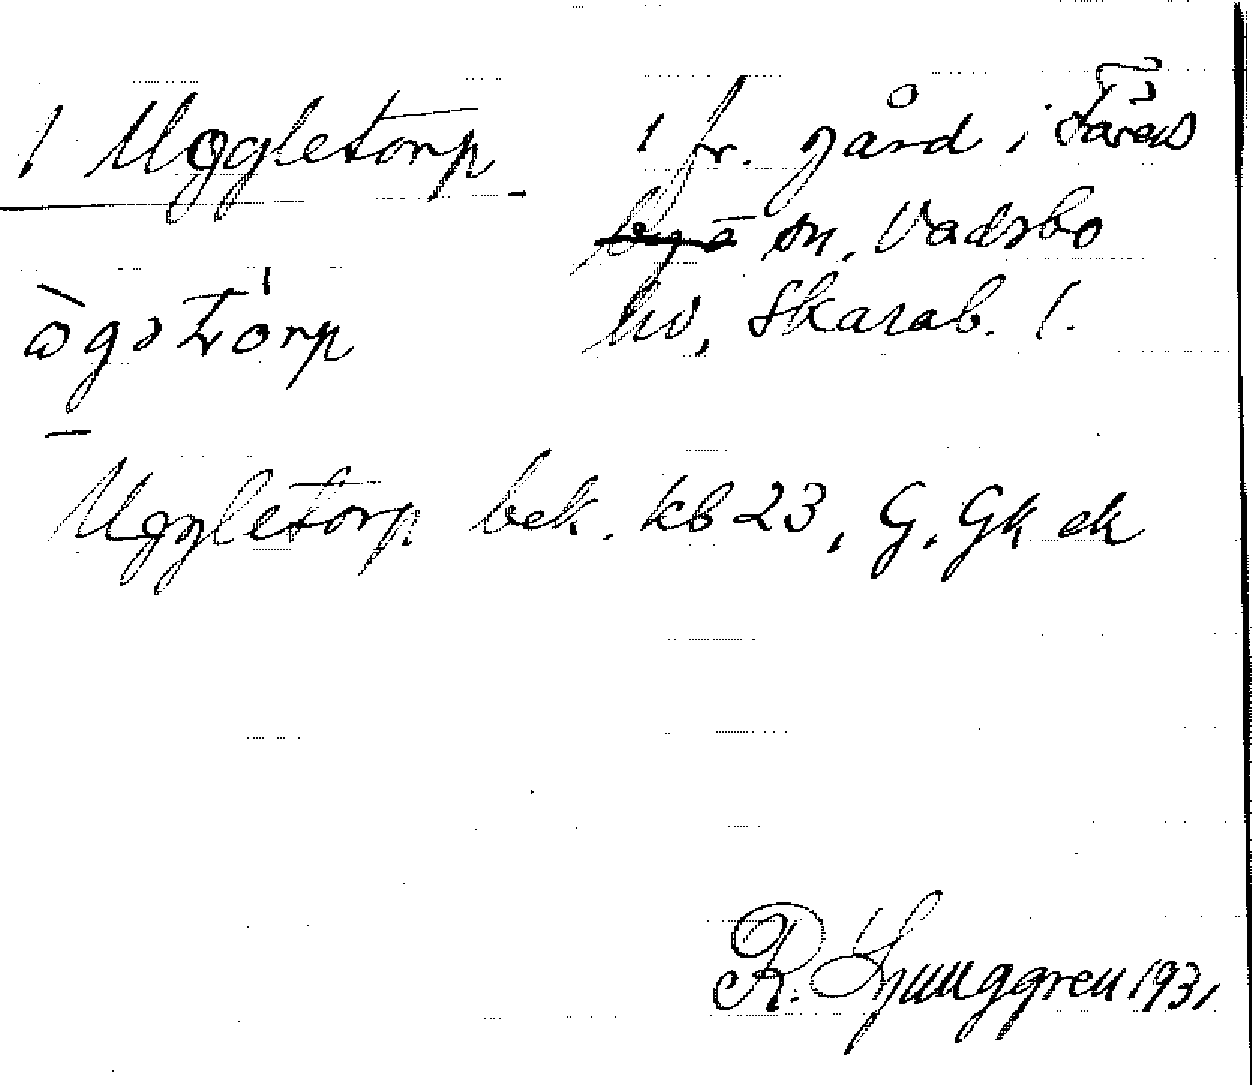 1 Uggletorp 1 fr. gård i Färeds
sn. Vadsbo
hd, Skarab. l.
Uggletorp bek. kb 23, G. Gk ek
R. Ljunggren 1931